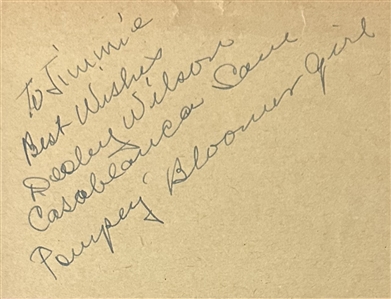 To Jimmie
Best Wishes
Dooley Wilson
Casablanca Sam
Pompey Bloomer Girl